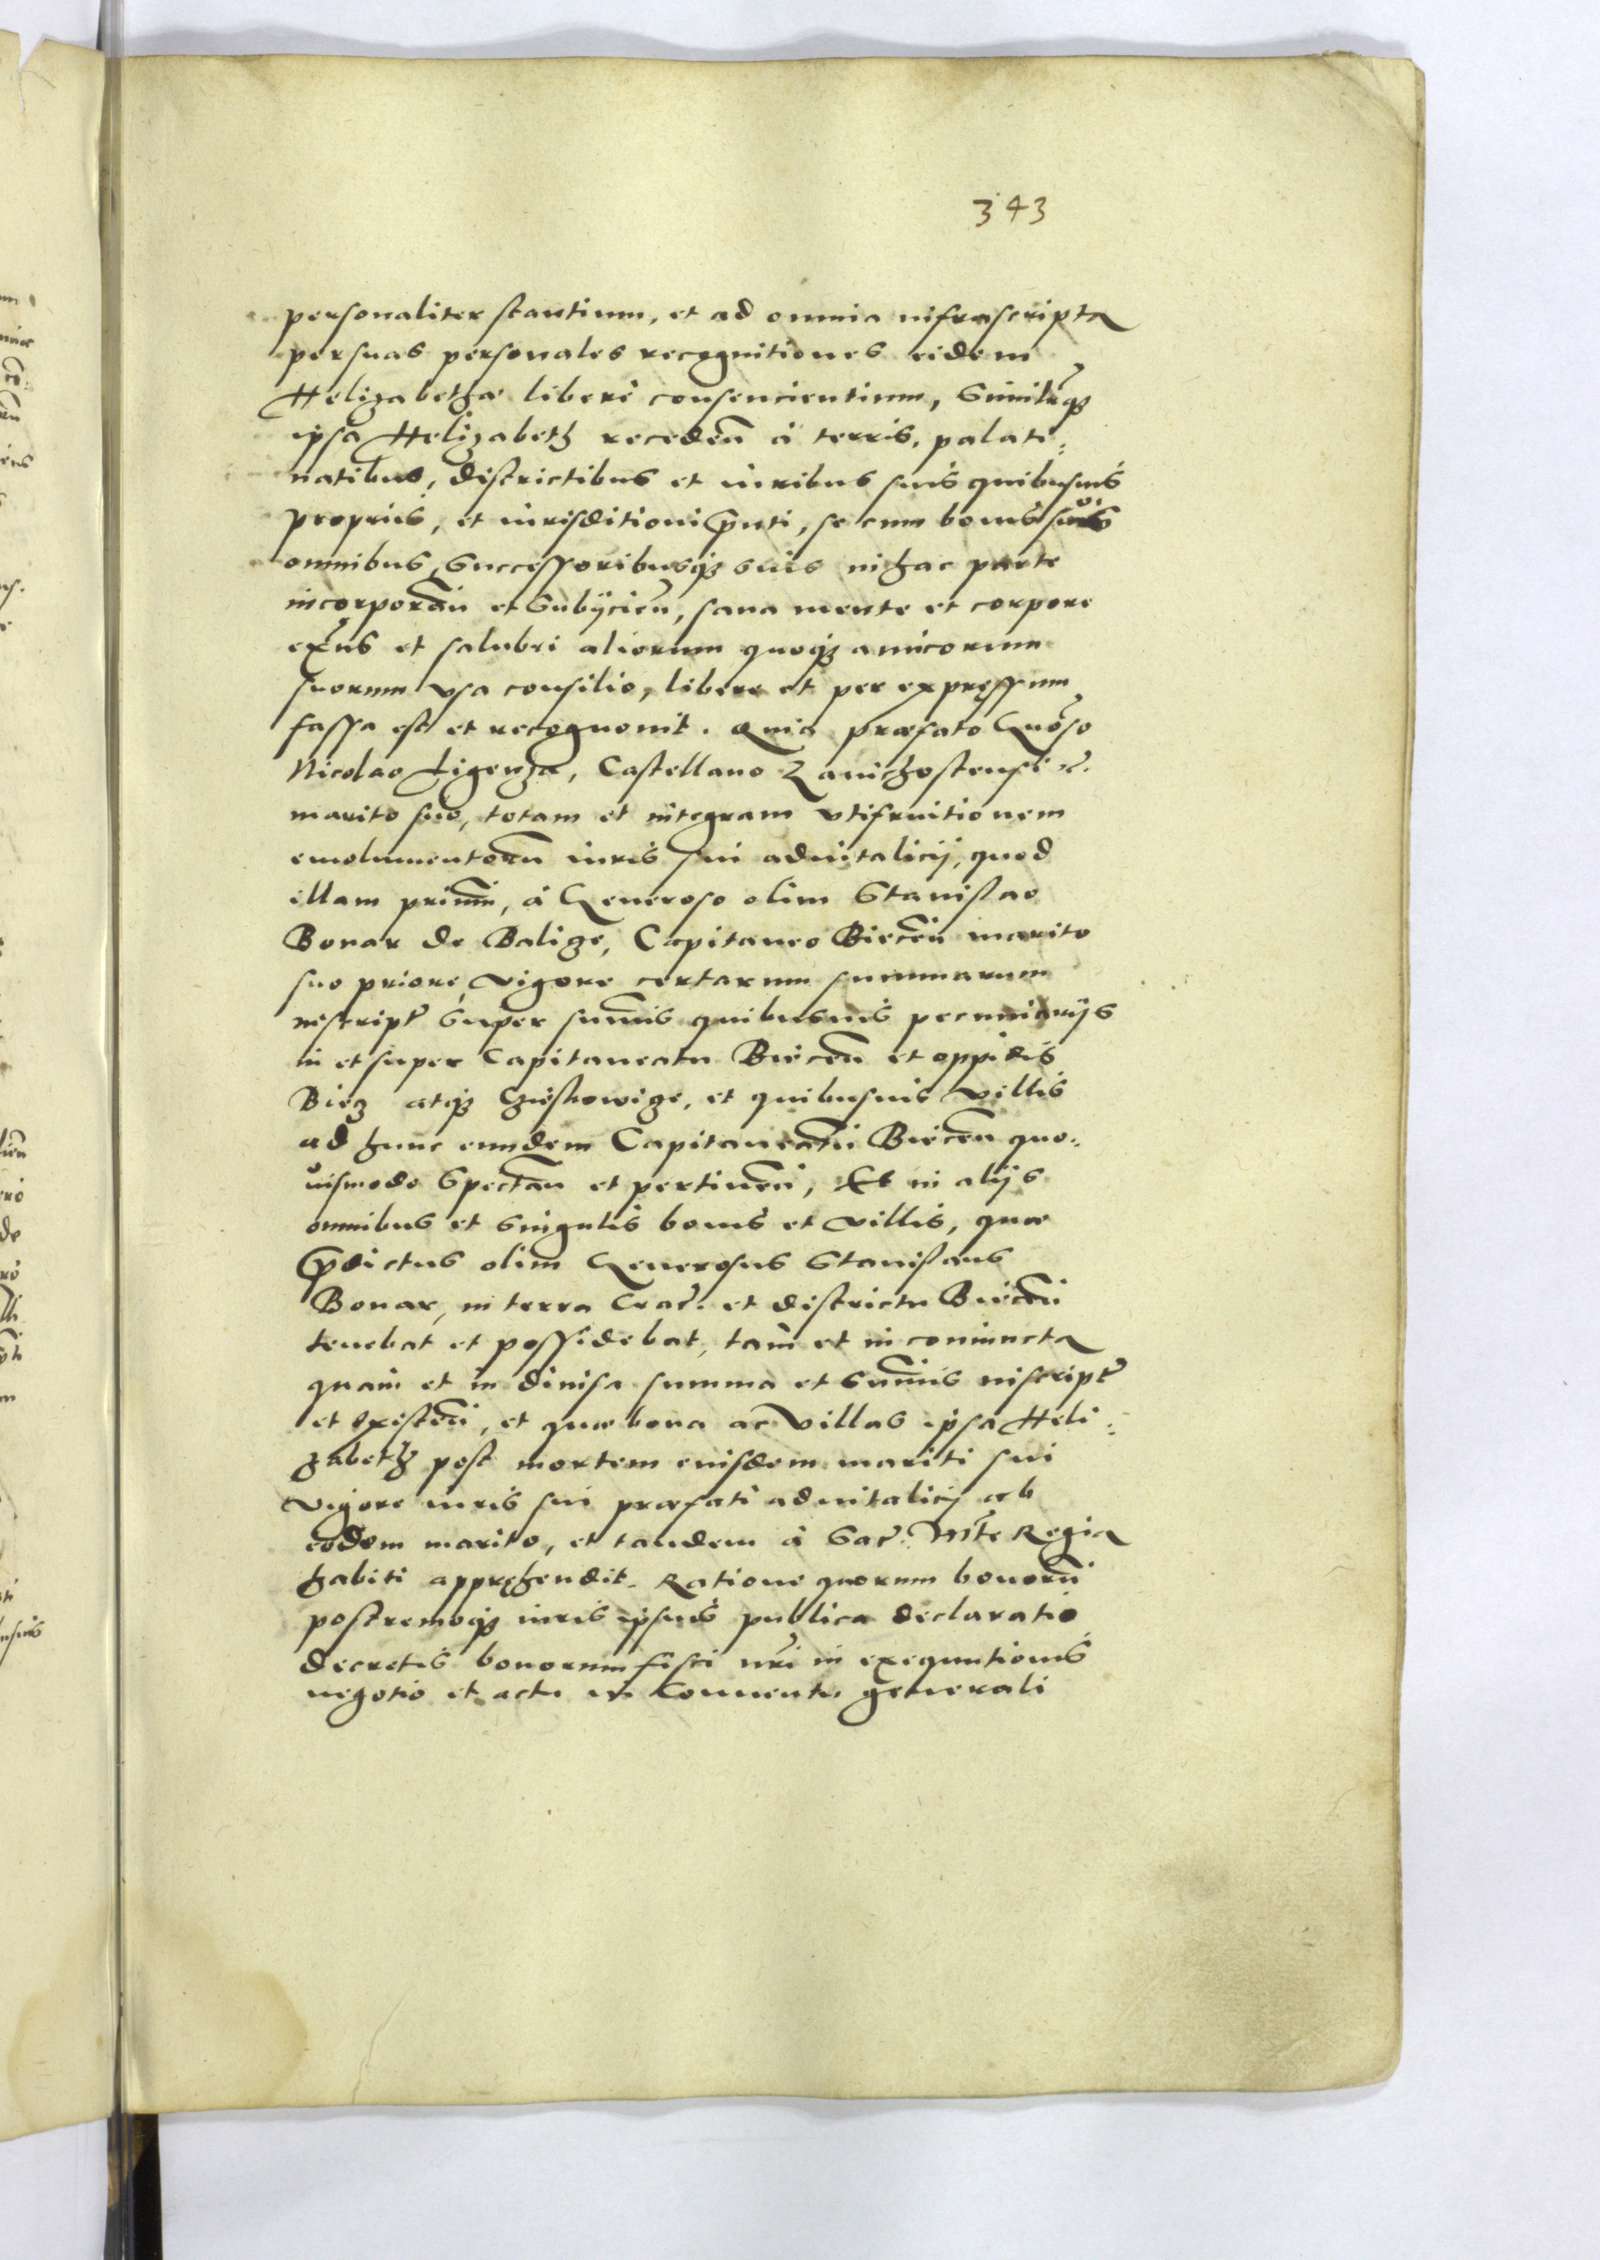 343
personaliter stantium, et ad omnia infrascripta
per suas personales recognitiones eidem
Helizabethæ liberè consencientium, Similitẽrq3
ipsa Helizabeth recedeñ à terris, palati:
natibus, districtibus et iuribus suis quibusuis
proprijs, et iurisditioni p̃nti, se cum bonis suis
omnibus, Successoribusq3 suis in hac parte
incorporañ et Subijcieñ, sana mente et corpore
exñs et salubri aliorum quoq3 amicorum
suorum vsa consilio, libere et per expressum
fassa est et recognouit. Quia præfato Gnõso
Nicolao Ligenza, Castellano Zauichostensi etc.
marito suo, totam et integram vtifruitionem
emolumentorũ iuris sui aduitalicij, quod
illam primũ, à Generoso olim Stanislao
Bonar de Balige, Capitaneo Bieceñ marito
suo priore, vigore certarum summarum
inscript̃ Super sum̃is quibusuis pecuniarijs
in et super Capitaneatu Bieceñ et oppidis
Biecz atq3 et quibusuis villis
ad hunc eundem Capitaneatũ Bieceñ quo:
uismodo Spectañ et pertineñ, Et in alijs
omnibus et Singulis bonis et villis, quæ
p̃dictus olim Generosus Stanislaus
Bonar, in terra Crac̃. et districtu Bieceñ
tenebat et possidebat, tam et in coniuncta
quam et in diuisa summa et Sum̃is inscript̃
et existeñ, et quæ bona ac villas ipsa Heli:
zabeth post mortem eiusdem mariti sui
vigore iuris sui præfati aduitalicij ab
eodem marito, et tandem à Sac̃. M̃te Regia
habiti apprehendit. Ratione quorum bonorũ
postremoq3 iuris ipsius publica declaratio
decretis bonorum fisci nr̃i in exequutionis
negotio et actu in Conuentu generali